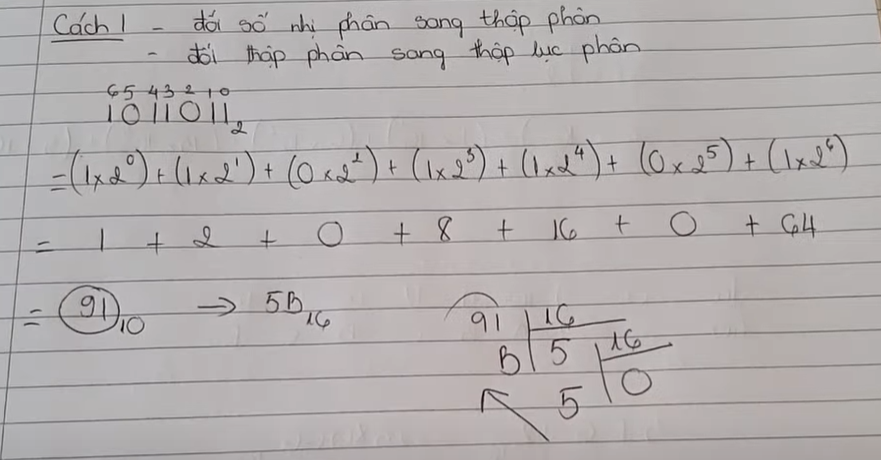 Cách 1 - đổi số nhị phân sang thập phân
- đổi thập phân sang thập lục phân
6 5 4 3 2 1 0
1 0 1 1 0 1 1₂
= (1 x 2⁰) + (1 x 2¹) + (0 x 2²) + (1 x 2³) + (1 x 2⁴) + (0 x 2⁵) + (1 x 2⁶)
= 1 + 2 + 0 + 8 + 16 + 0 + 64
= 91₁₀ → 5B₁₆
91 16
B 5 16
5 0